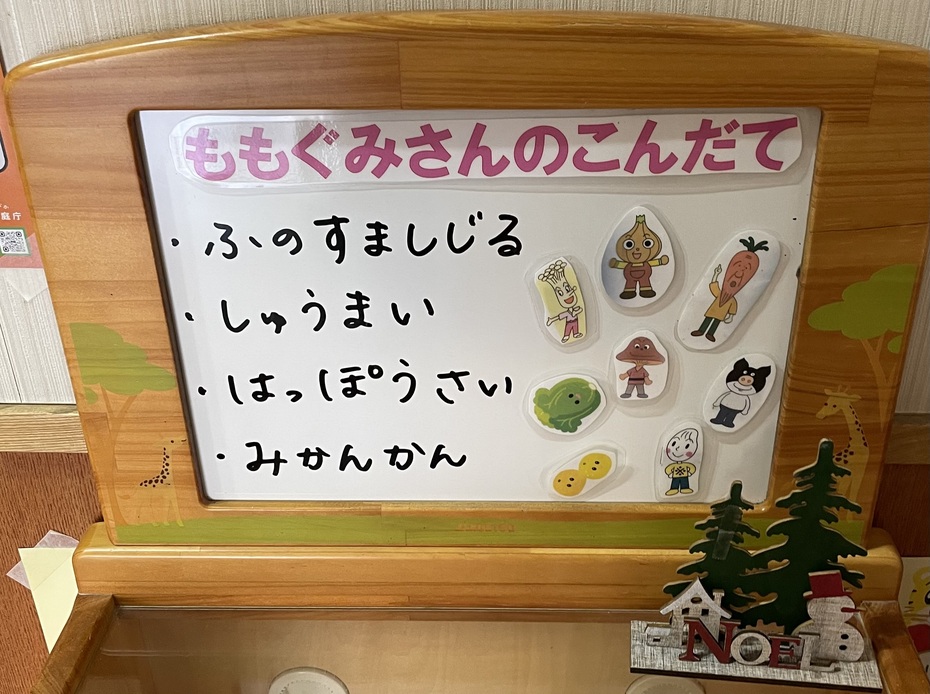 ももぐみさんのこんだて
・ふのすましじる
・しゅうまい
・はっぽうさい
・みかんかん
庭庁
NOEL